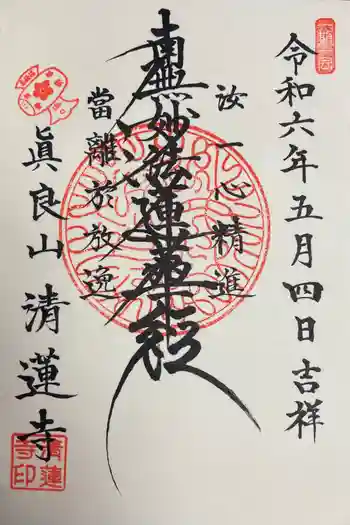 令和六年五月四日吉祥
汝一心精進
南無妙法蓮華経
當離於放逸
眞良山
清蓮寺
清蓮
寺印